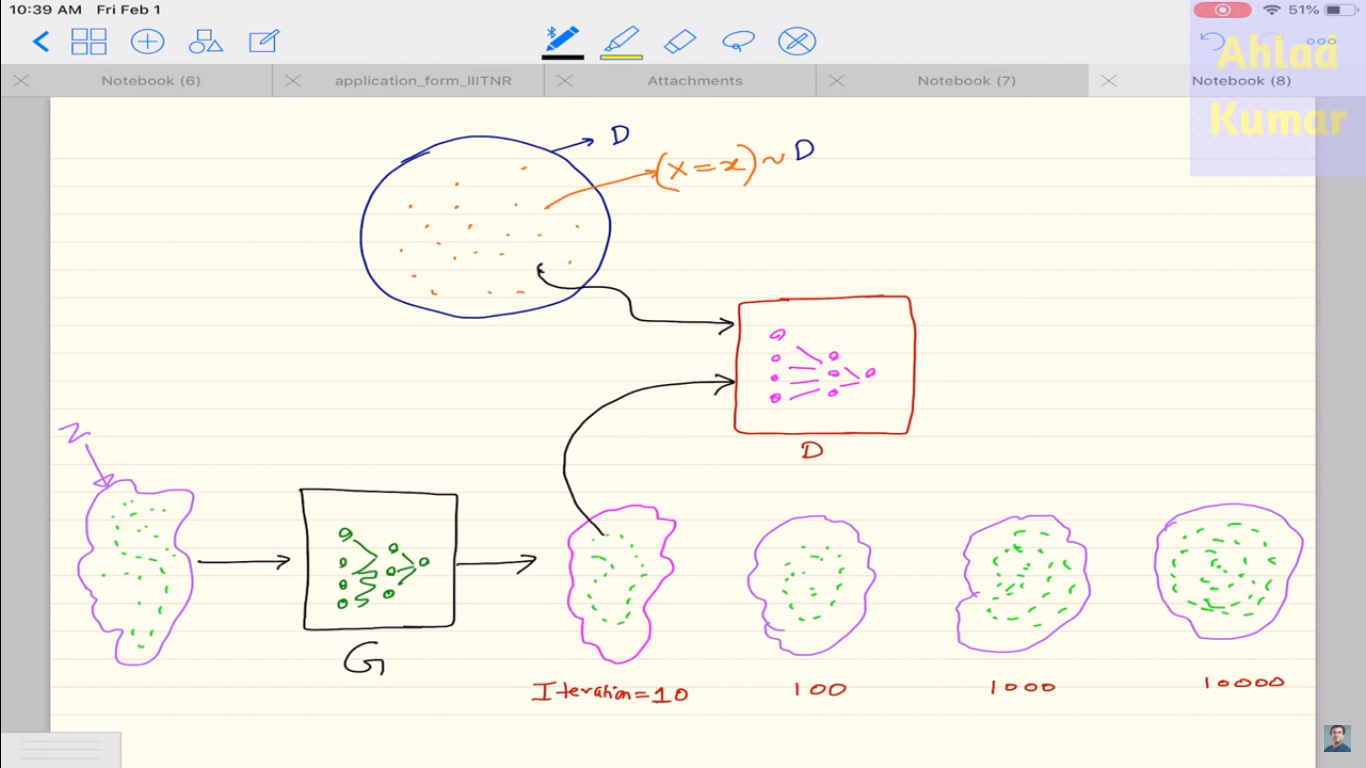 10:39 AM Fri Feb 1
51%
Ahlad
Kumar
Notebook (6)
application_form_IIITNR
Attachments
Notebook (7)
Notebook (8)
D
(X = x) ~ D
D
Z
G
Iteration = 10
100
1000
10000